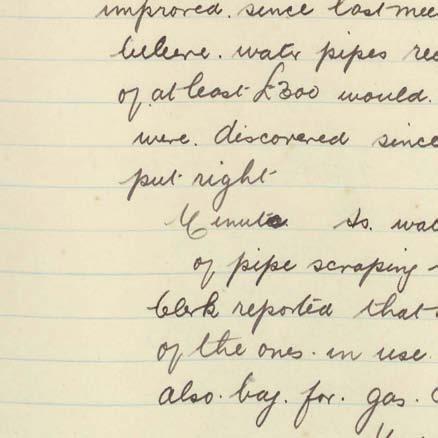 improved. since last mee
believe. water pipes re
of. at least £300 would.
were. discovered since
put right
Minute As. wa
of pipe scraping
Clerk reported that
of the ones. in use.
also. bag. for. gas.